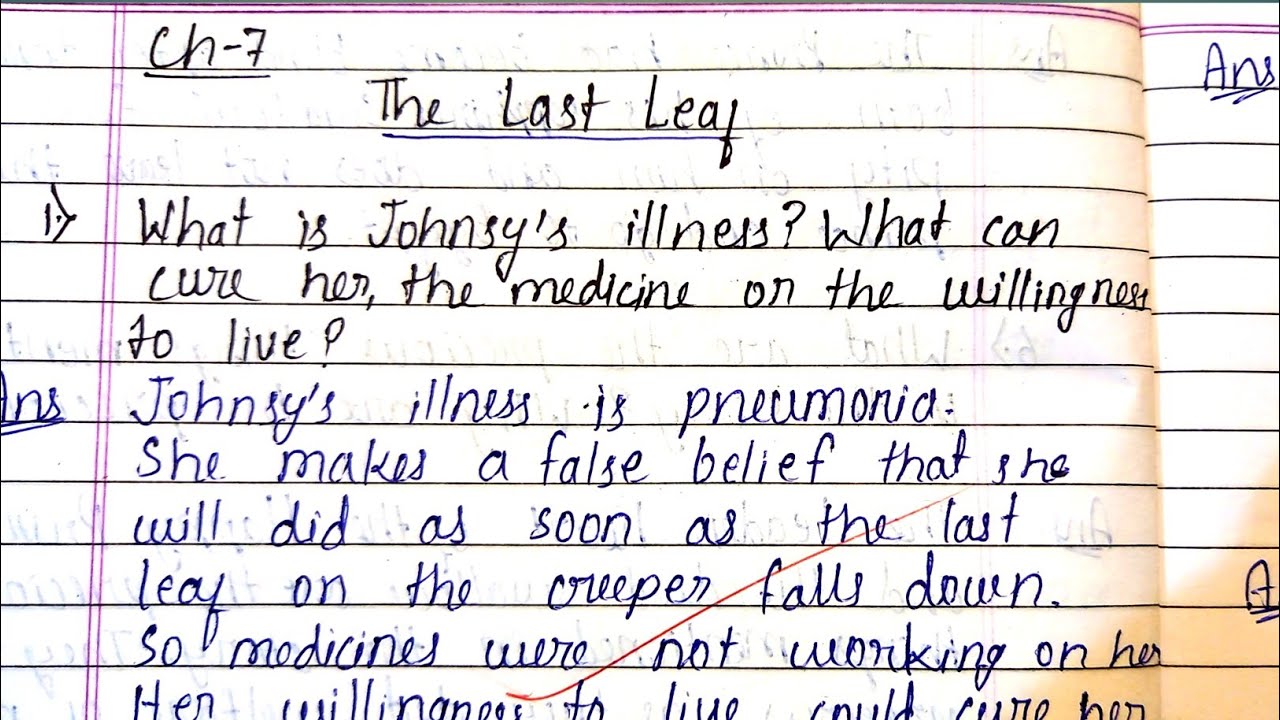 Ch-7
The Last Leaf
1)
What is Johnsy's illness? What can
cure her, the medicine or the willingness
to live?
Ans Johnsy's illness is pneumonia.
She makes a false belief that she
will did as soon as the last
leaf on the creeper falls down.
So medicines were not working on her
Her willingness to live could cure her
Ans